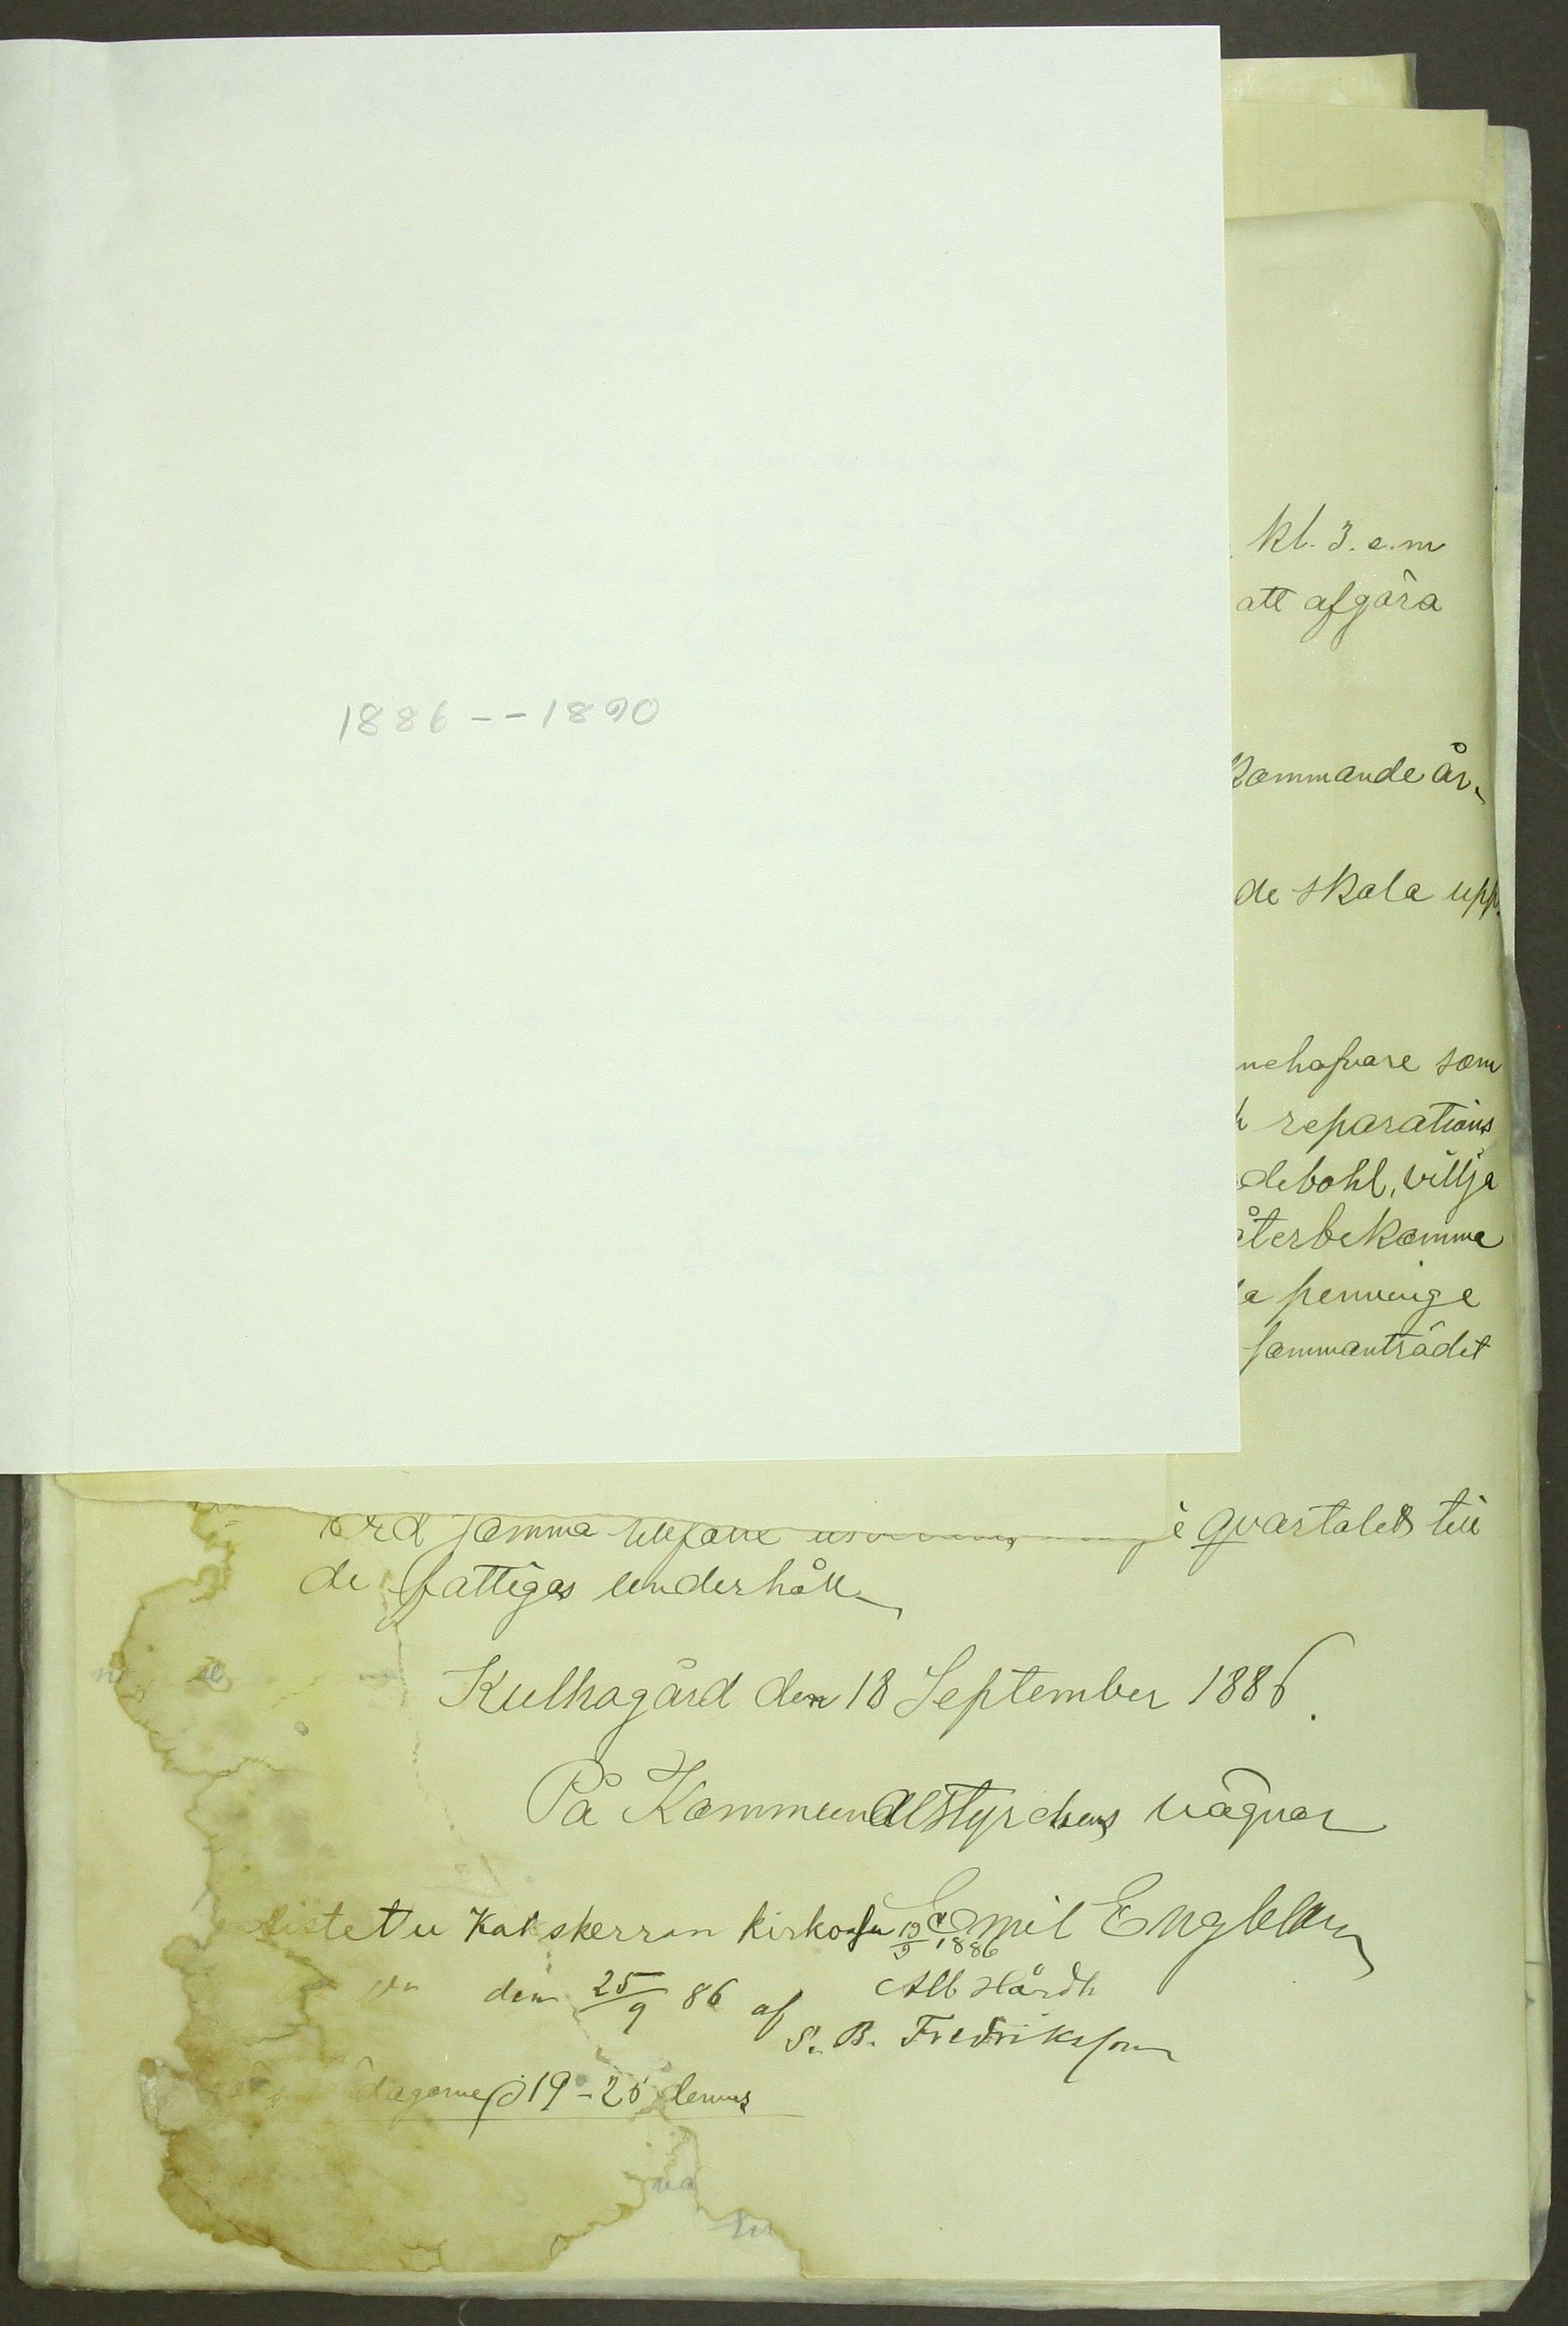 1886 -- 1890
kl. 3. e.m
att afgöra
kommande år
de skola upp
nehafvare som
reparations
debohl, villja
återbekomma
a penninge
sammanträdet
samma
qvartalets till
de fattigas underhåll
Kulhogård den 18 September 1886.
På Kommunalstyrelsens vägnar
Emil Engblom
Kakskerran kirkossa 19/9 1886
Alb Hårdh
den 25/9 86 af
S. B. Fredriksson
dagarne 19-25 dennes